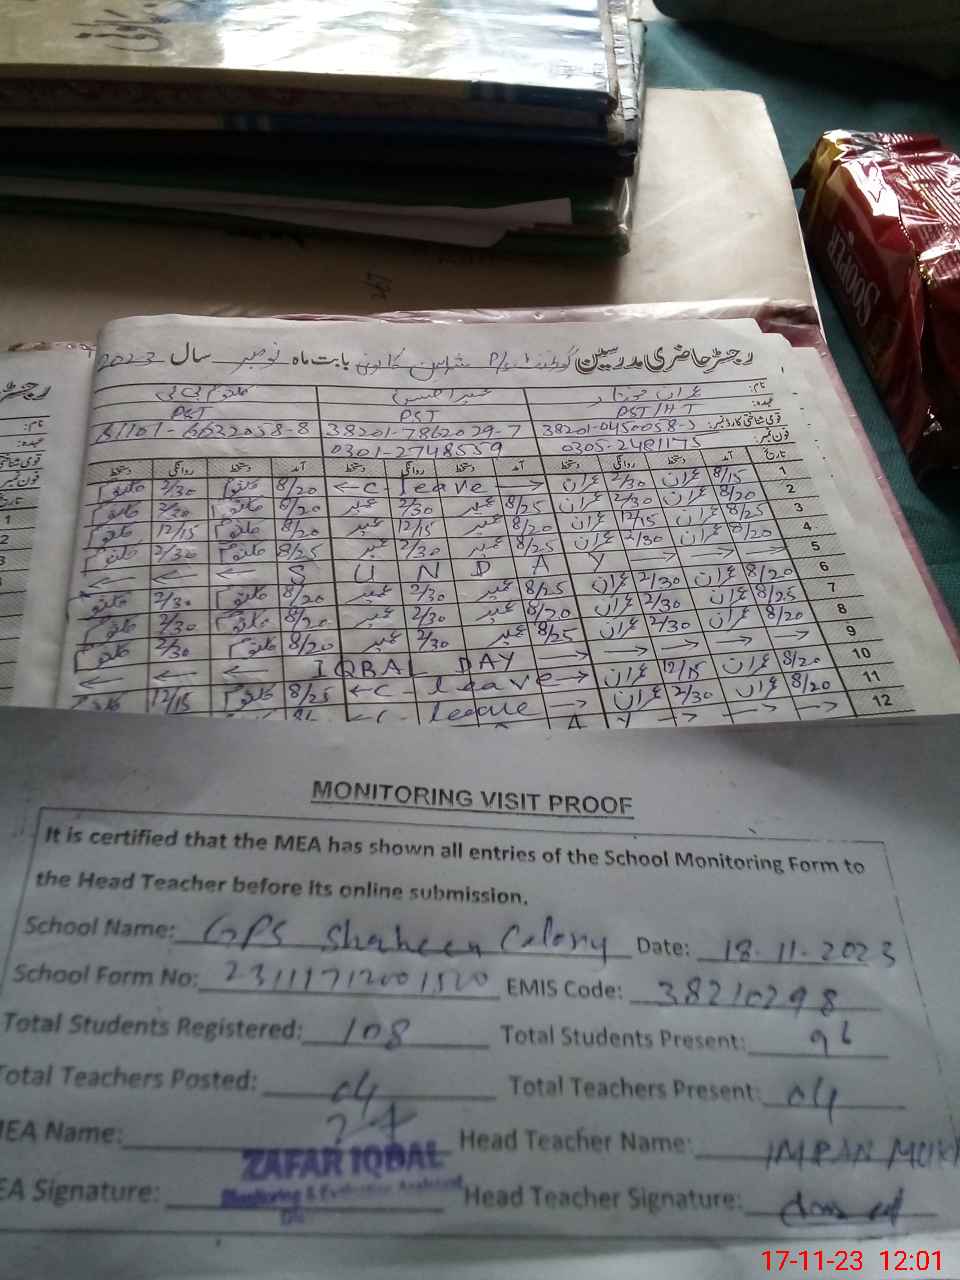 SOOPER
رجسٹر حاضری مدرسین گورنمنٹ P/S شاہین کالونی بابت ماہ نومبر سال 2023
نام: عمران مختار
عہدہ: PST/HT PST PST
قومی شناختی کارڈ نمبر: 38201-0450058-5 38201-7862029-7 81101-6632058-8
فون نمبر: 0305-2481175 0301-2748559
تاریخ آمد دستخط روانگی دستخط آمد دستخط روانگی دستخط آمد دستخط روانگی دستخط
1 8/15 عمران 2/30 عمران ← C- leave → 8/20 کلثوم 2/30 کلثوم
2 8/20 عمران 2/30 عمران 8/25 عبیر 2/30 عبیر 8/20 کلثوم 2/30 کلثوم
3 8/25 عمران 12/15 عمران 8/20 عبیر 12/15 عبیر 8/20 کلثوم 12/15 کلثوم
4 8/20 عمران 2/30 عمران 8/25 عبیر 2/30 عبیر 8/25 کلثوم 2/30 کلثوم
5 ← ← ← S U N D A Y → → →
6 8/20 عمران 2/30 عمران 8/25 عبیر 2/30 عبیر 8/20 کلثوم 2/30 کلثوم
7 8/25 عمران 2/30 عمران 8/20 عبیر 2/30 عبیر 8/20 کلثوم 2/30 کلثوم
8 8/20 عمران 2/30 عمران 8/25 عبیر 2/30 عبیر 8/20 کلثوم 2/30 کلثوم
9 ← ← ← IQBAL DAY → → → →
10 8/20 عمران 12/15 عمران ← C- leave → 8/25 کلثوم 12/15 کلثوم
11 8/20 عمران 2/30 عمران ← C- leave →
12 A Y → → →
MONITORING VISIT PROOF
It is certified that the MEA has shown all entries of the School Monitoring Form to
the Head Teacher before its online submission.
School Name: GPS Shaheen Colony Date: 18.11.2023
School Form No: 23111712001520 EMIS Code: 38210298
Total Students Registered: 108 Total Students Present: 96
Total Teachers Posted: 04 Total Teachers Present: 04
MEA Name: ZAFAR IQBAL Head Teacher Name: IMRAN MUKH
EA Signature: Monitoring & Evaluation Assistant Head Teacher Signature:
17-11-23 12:01